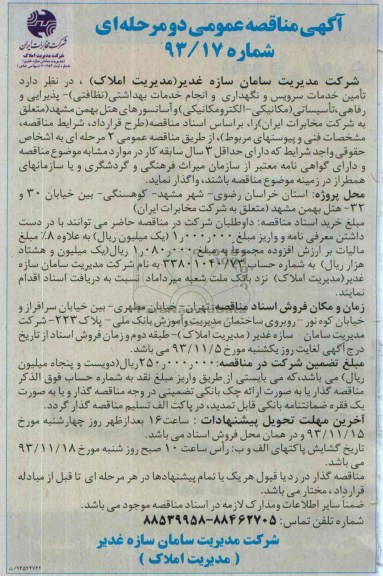 آگهی مناقصه عمومی دو مرحله ای
شماره ۹۳/۱۷
شرکت مخابرات ایران
شرکت مدیریت املاک
شرکت مدیریت سامان سازه غدیر(مدیریت املاک) ، در نظر دارد
تأمین خدمات سرویس و نگهداری و انجام خدمات بهداشتی(نظافتی)- پذیرایی و
رفاهی،تأسیساتی (مکانیکی-الکترومکانیکی)و آسانسورهای هتل بهمن مشهد(متعلق
به شرکت مخابرات ایران)را، براساس اسناد مناقصه(طرح قرارداد، شرایط مناقصه،
مشخصات فنی و پیوستهای مربوط)، از طریق مناقصه عمومی ۲ مرحله ای به اشخاص
حقوقی واجد شرایط که دارای حداقل ۳ سال سابقه کار در موارد مشابه موضوع مناقصه
و دارای گواهی نامه معتبر از سازمان میراث فرهنگی و گردشگری و یا سازمانهای
همطراز در زمینه موضوع مناقصه باشند، واگذار نماید.
محل پروژه: استان خراسان رضوی- شهر مشهد- کوهسنگی- بین خیابان ۳۰ و
۳۲- هتل بهمن مشهد (متعلق به شرکت مخابرات ایران)
مبلغ خرید اسناد مناقصه: داوطلبان شرکت در مناقصه حاضر می توانند با در دست
داشتن معرفی نامه و واریز مبلغ ۱٫۰۰۰٫۰۰۰ (یک میلیون ریال) به علاوه ۸٪ مبلغ
مالیات بر ارزش افزوده مجموعاً به مبلغ ۱٫۰۸۰٫۰۰۰ ریال(یک میلیون و هشتاد
هزار ریال) به شماره حساب به نام شرکت مدیریت سامان سازه
غدیر(مدیریت املاک) نزد بانک ملت شعبه میرداماد نسبت به دریافت اسناد اقدام
نمایند.
زمان و مکان فروش اسناد مناقصه: تهران- خیابان مطهری- بین خیابان سرافراز و
خیابان کوه نور-روبروی ساختمان مدیریت و آموزش بانک ملی- پلاک ۲۲۳-شرکت
مدیریت سامان سازه غدیر ( مدیریت املاک)- طبقه دوم و زمان فروش اسناد از تاریخ
درج آگهی لغایت روز یکشنبه مورخ ۹۳/۱۱/۵ می باشد.
مبلغ تضمین شرکت در مناقصه: ۲۵۰٫۰۰۰٫۰۰۰ریال(دویست و پنجاه میلیون
ریال) می باشد،که می بایستی از طریق واریز مبلغ نقد به شماره حساب فوق الذکر
مناقصه گذار یا به صورت ارائه چک بانکی تضمینی در وجه مناقصه گذار و یا به صورت
یک فقره ضمانتنامه بانکی قابل تمدید، در پاکت الف تسلیم مناقصه گذار گردد.
آخرین مهلت تحویل پیشنهادات : ساعت ۱۶ بعدازظهر روز چهارشنبه مورخ
۹۳/۱۱/۱۵ و در همان محل فروش اسناد می باشد.
تاریخ گشایش پاکتهای الف و ب: رأس ساعت ۱۰ صبح روز شنبه مورخ ۹۳/۱۱/۱۸
می باشد.
مناقصه گذار در رد یا قبول هر یک یا تمام پیشنهادها در هر مرحله ای تا قبل از مبادله
قرارداد، مختار می باشد.
ضمناً سایر اطلاعات ومدارک لازمه در اسناد مناقصه موجود می باشد.
شماره تلفن تماس: ۸۸۴۶۲۷۰۵-۸۸۵۳۹۹۵۸
شرکت مدیریت سامان سازه غدیر
( مدیریت املاک )